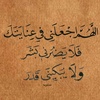 اللهم اجعلني في عنايتك
فلا يضرني بشر
ولا يبكيني قدر